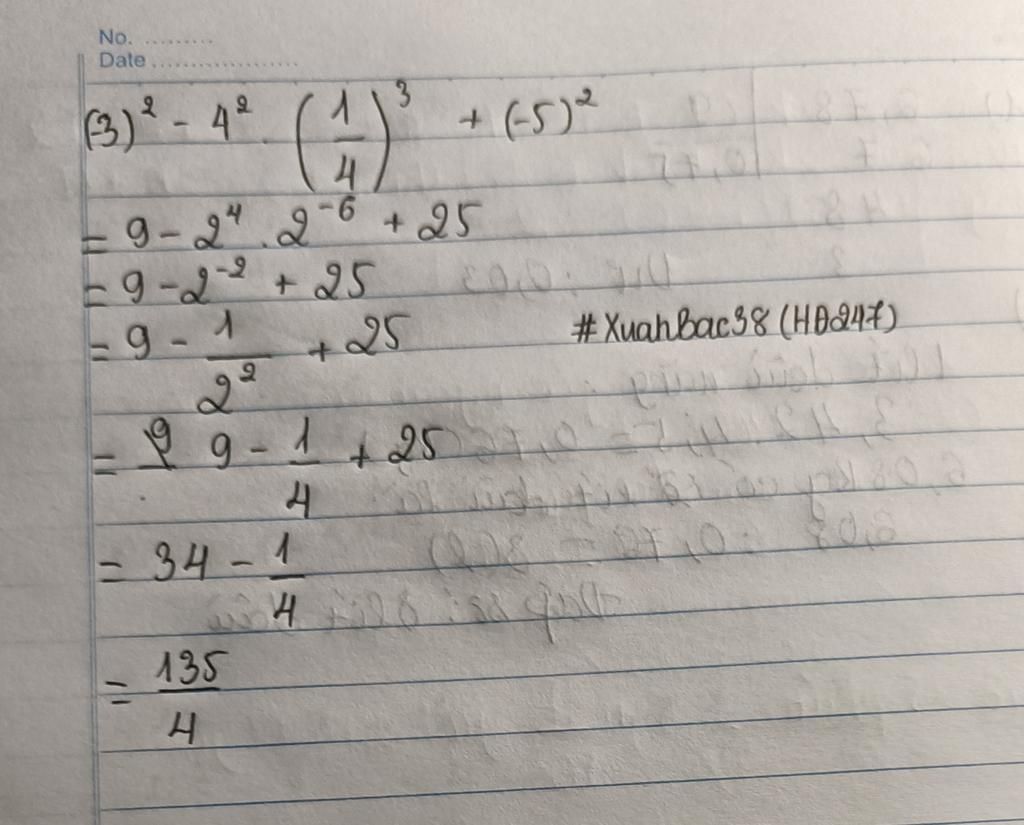 No. .........
Date ...................
(-3)² - 4² . (1/4)³ + (-5)²
= 9 - 2⁴ . 2⁻⁶ + 25
= 9 - 2⁻² + 25
= 9 - 1/2² + 25
#XuanBac38 (HĐ247)
= 9 - 1/4 + 25
= 34 - 1/4
= 135/4